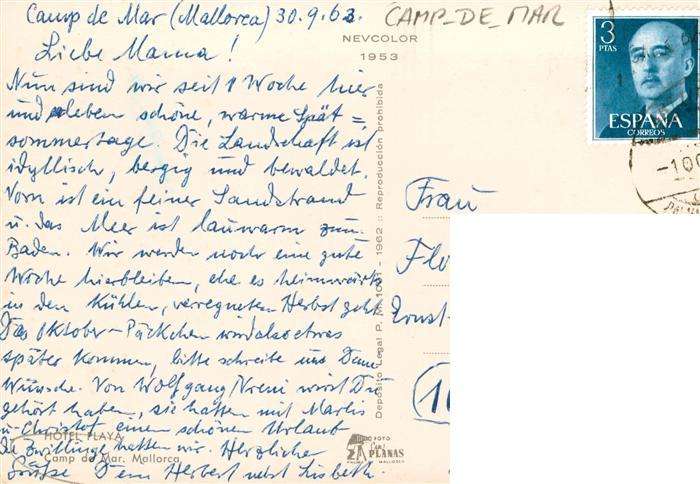 Camp de Mar (Mallorca) 30.9.63.
CAMP_DE_MAR
Liebe Mama!
NEVCOLOR
1953
3
PTAS
ESPAÑA
CORREOS
Nun sind wir seit 1 Woche hier
und erleben schöne, warme Spät=
sommertage. Die Landschaft ist
idyllisch, bergig und bewaldet.
Vorn ist ein feiner Sandstrand
u. das Meer ist lauwarm zum
Baden. Wir werden noch eine gute
Woche hierbleiben, ehe es heimwärts
in den Kühlen, verregneten Herbst geht
Das Oktober-Päckchen wird also etwas
später kommen, bitte schreibe uns Deine
Wünsche. Von Wolfgang/Vreni wirst Du
gehört haben, sie hatten mit Marlis
u. Christof einen schönen Urlaub
die Zwillinge hatten wir. Herzliche
Grüsse Dein Herbert nebst Lisbeth.
HOTEL PLAYA
Camp de Mar. Mallorca
Deposito Legal P. M. 1001 - 1962 :: Reproducción prohibida
FOTO
PLANAS
PALMA MALLORCA
Frau
Flo
Ernst-
(10